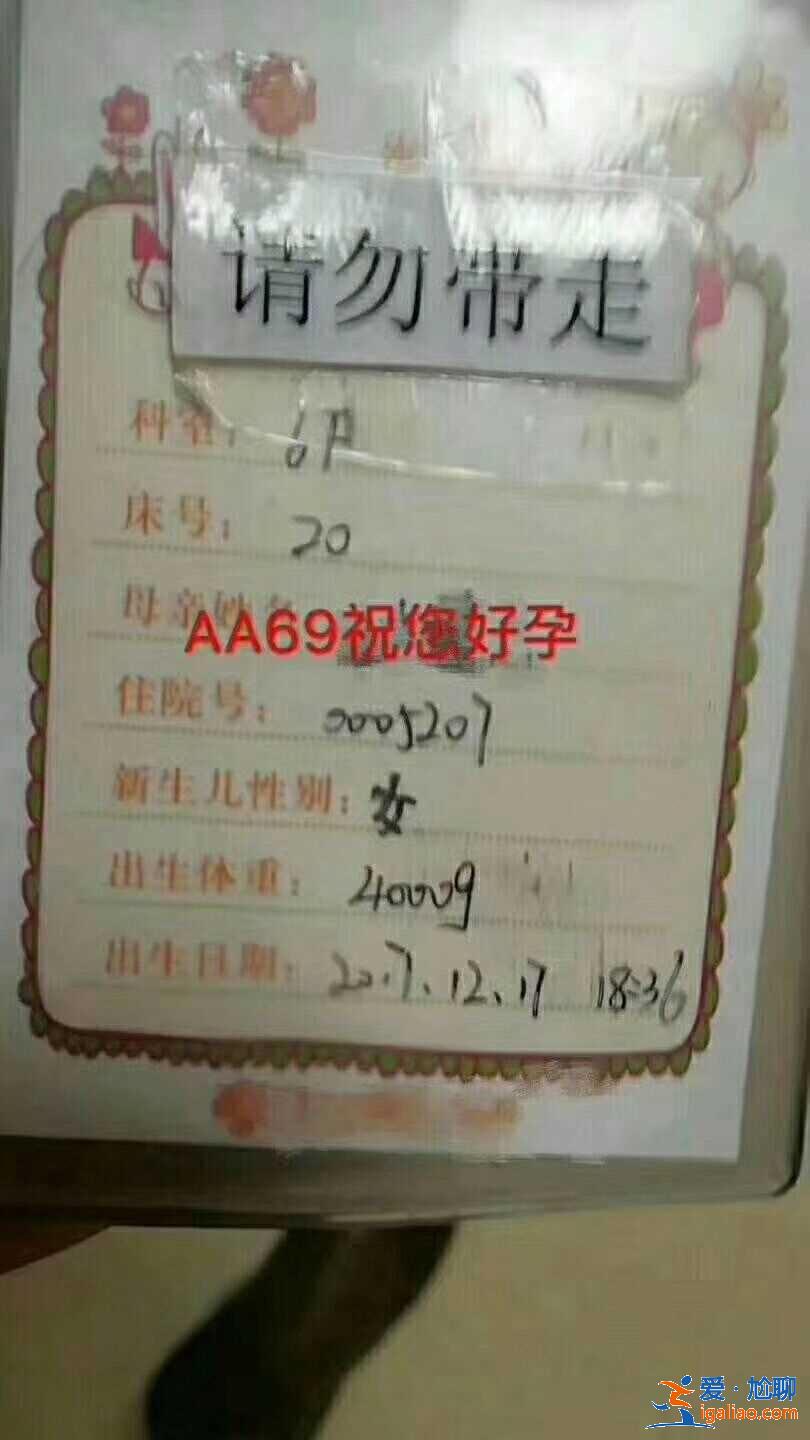 请勿带走
科室：6户
床号：20
母亲姓名
AA69祝您好孕
住院号：0005207
新生儿性别：女
出生体重：4000g
出生日期：20.7、12、17 18:36
爱·尬聊
igaliao.com